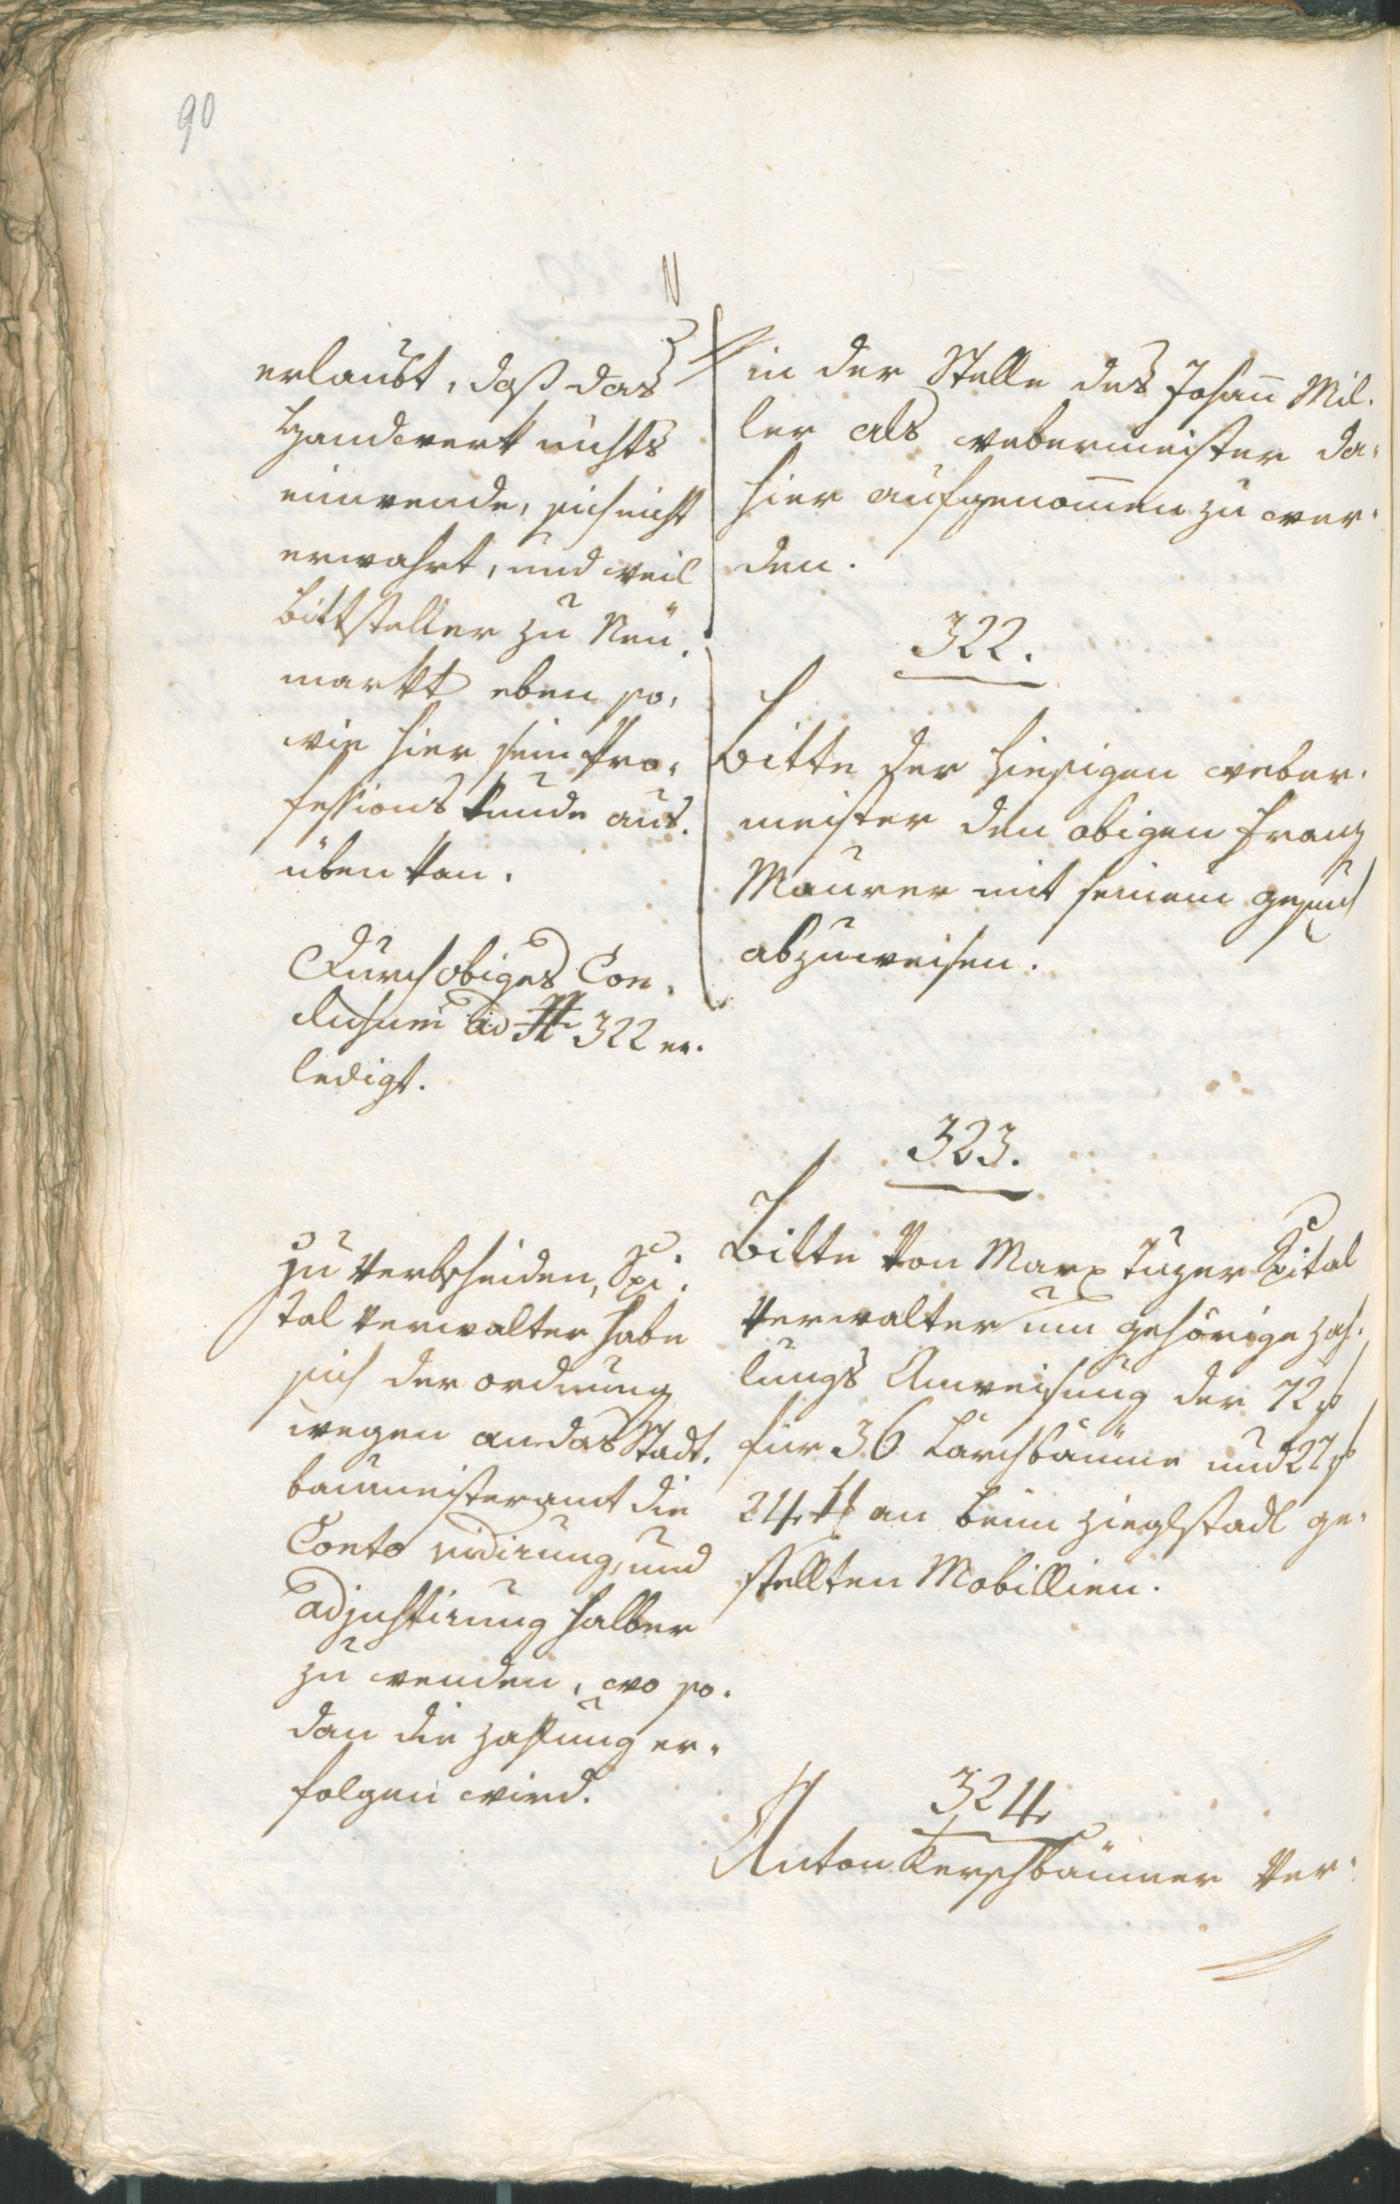 90
erlaubt, daß das
Handwerk nichts
einwende, sich nicht
erwahrt, und weil
Bittsteller zu Neu-
markt eben so,
wie hier sein Pro-
fessions kunde aus-
üben kan.
Durch obiges Con-
clusum ad N 322 er-
ledigt.
zu verbscheiden, Spi-
tal Verwalter habe
sich der ordnung
wegen an das Stadt-
baumeisteramt die
Conto vidirung, und
adjustirung halber
zu wenden, wo so-
dan die Zahlung er-
folgen wird.
in der Stelle des Johan̄ Mil-
ler als webermeister da-
hier aufgenom̄en zu wer-
den.
322.
Bitte der hiesigen weber-
meister den obigen Franz
Maurer mit seinem gesuch
abzuweisen.
323.
Bitte von Marx Tuzer Spital
Verwalter um gehörige Zah-
lungs Anweisung der 72 f
für 36 Larchbäume und 27 f
24 x an beim Zieglstadl ge-
stellten Mobillien.
324
Anton Kerschbaumer Ver-